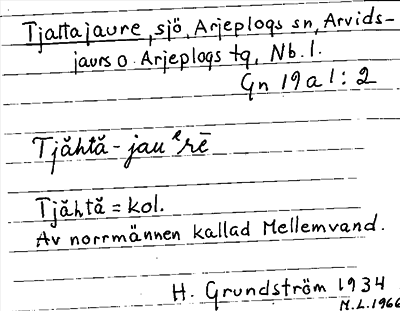 Tjattajaure, sjö, Arjeplogs sn, Arvids-
jaurs o. Arjeplogs tg, Nb. l.
Gn 19 a 1 : 2
Tjǎhtǎ - jauᵉrē
Tjǎhtǎ = kol.
Av norrmännen kallad Mellemvand.
H. Grundström 1934
M.L. 1966